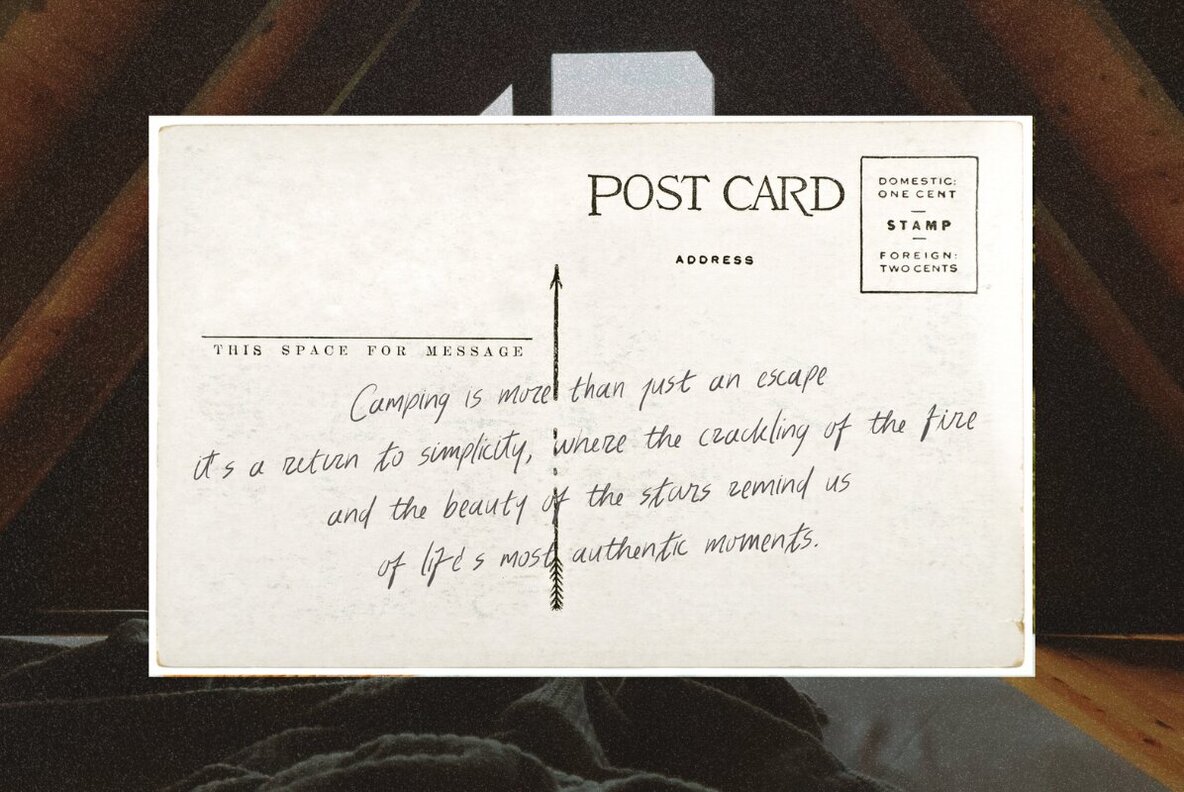 POST CARD
DOMESTIC:
ONE CENT
STAMP
FOREIGN:
TWO CENTS
ADDRESS
THIS SPACE FOR MESSAGE
Camping is more than just an escape
it's a return to simplicity, where the crackling of the fire
and the beauty of the stars remind us
of life's most authentic moments.